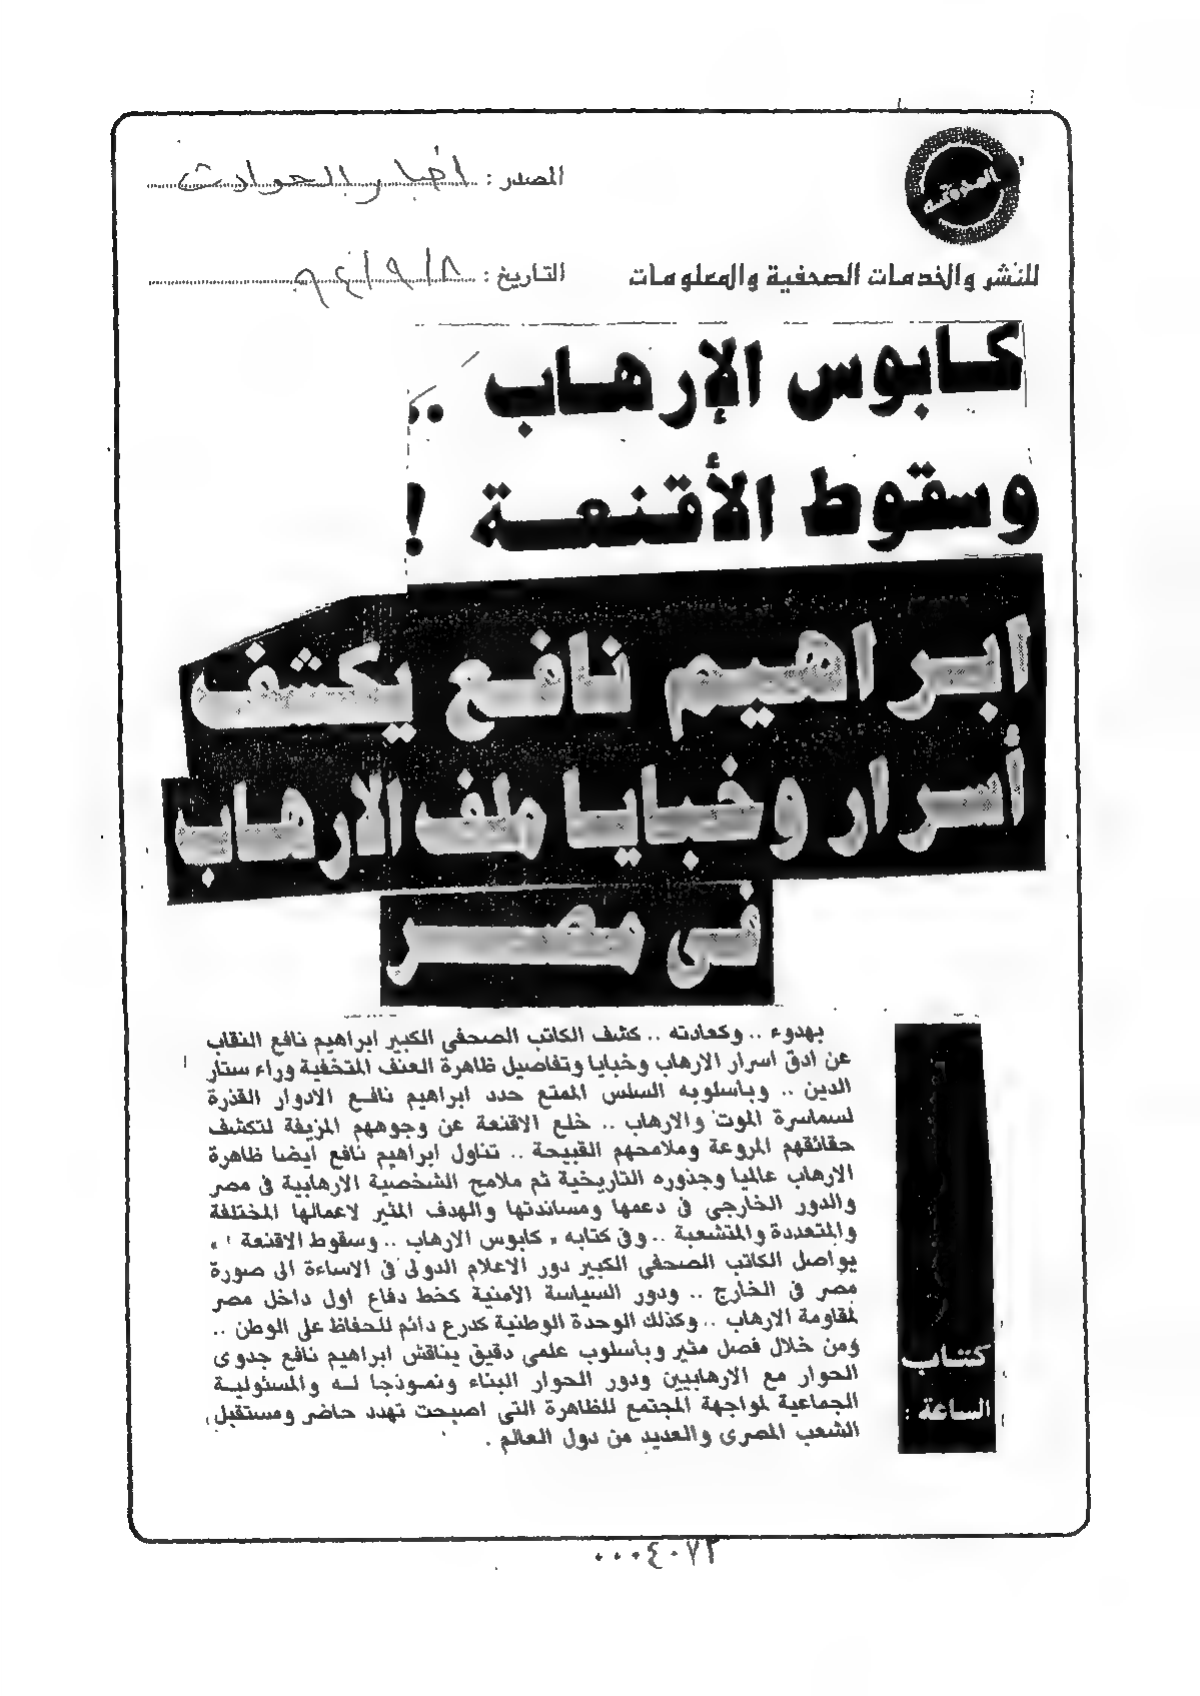 المصدر : اخبار الحوادث
للنشر والخدمات الصحفية والمعلومات
التاريخ : ٩٤/٩/٨
كابوس الإرهاب ..
وسقوط الأقنعة !
ابراهيم نافع يكشف
أسرار وخبايا ملف الارهاب
فى مصر
بهدوء .. وكعادته .. كشف الكاتب الصحفى الكبير ابراهيم نافع النقاب
عن ادق اسرار الارهاب وخبايا وتفاصيل ظاهرة العنف المتخفية وراء ستار
الدين .. وباسلوبه السلس الممتع حدد ابراهيم نافع الادوار القذرة
لسماسرة الموت والارهاب .. خلع الاقنعة عن وجوههم المزيفة لتكشف
حقائقهم المروعة وملامحهم القبيحة .. تناول ابراهيم نافع ايضا ظاهرة
الارهاب عالميا وجذوره التاريخية ثم ملامح الشخصية الارهابية فى مصر
والدور الخارجى فى دعمها ومساندتها والهدف المثير لاعمالها المختلفة
والمتعددة والمتشعبة .. وفى كتابه « كابوس الارهاب .. وسقوط الاقنعة ! »
يواصل الكاتب الصحفى الكبير دور الاعلام الدولى فى الاساءة الى صورة
مصر فى الخارج .. ودور السياسة الأمنية كخط دفاع اول داخل مصر
لمقاومة الارهاب .. وكذلك الوحدة الوطنية كدرع دائم للحفاظ على الوطن ..
ومن خلال فصل مثير وبأسلوب علمى دقيق يناقش ابراهيم نافع جدوى
الحوار مع الارهابيين ودور الحوار البناء ونموذجا له والمسئولية
الجماعية لمواجهة المجتمع للظاهرة التى اصبحت تهدد حاضر ومستقبل
الشعب المصرى والعديد من دول العالم .
كتاب
الساعة :
٠٠٠٤٠٧٣